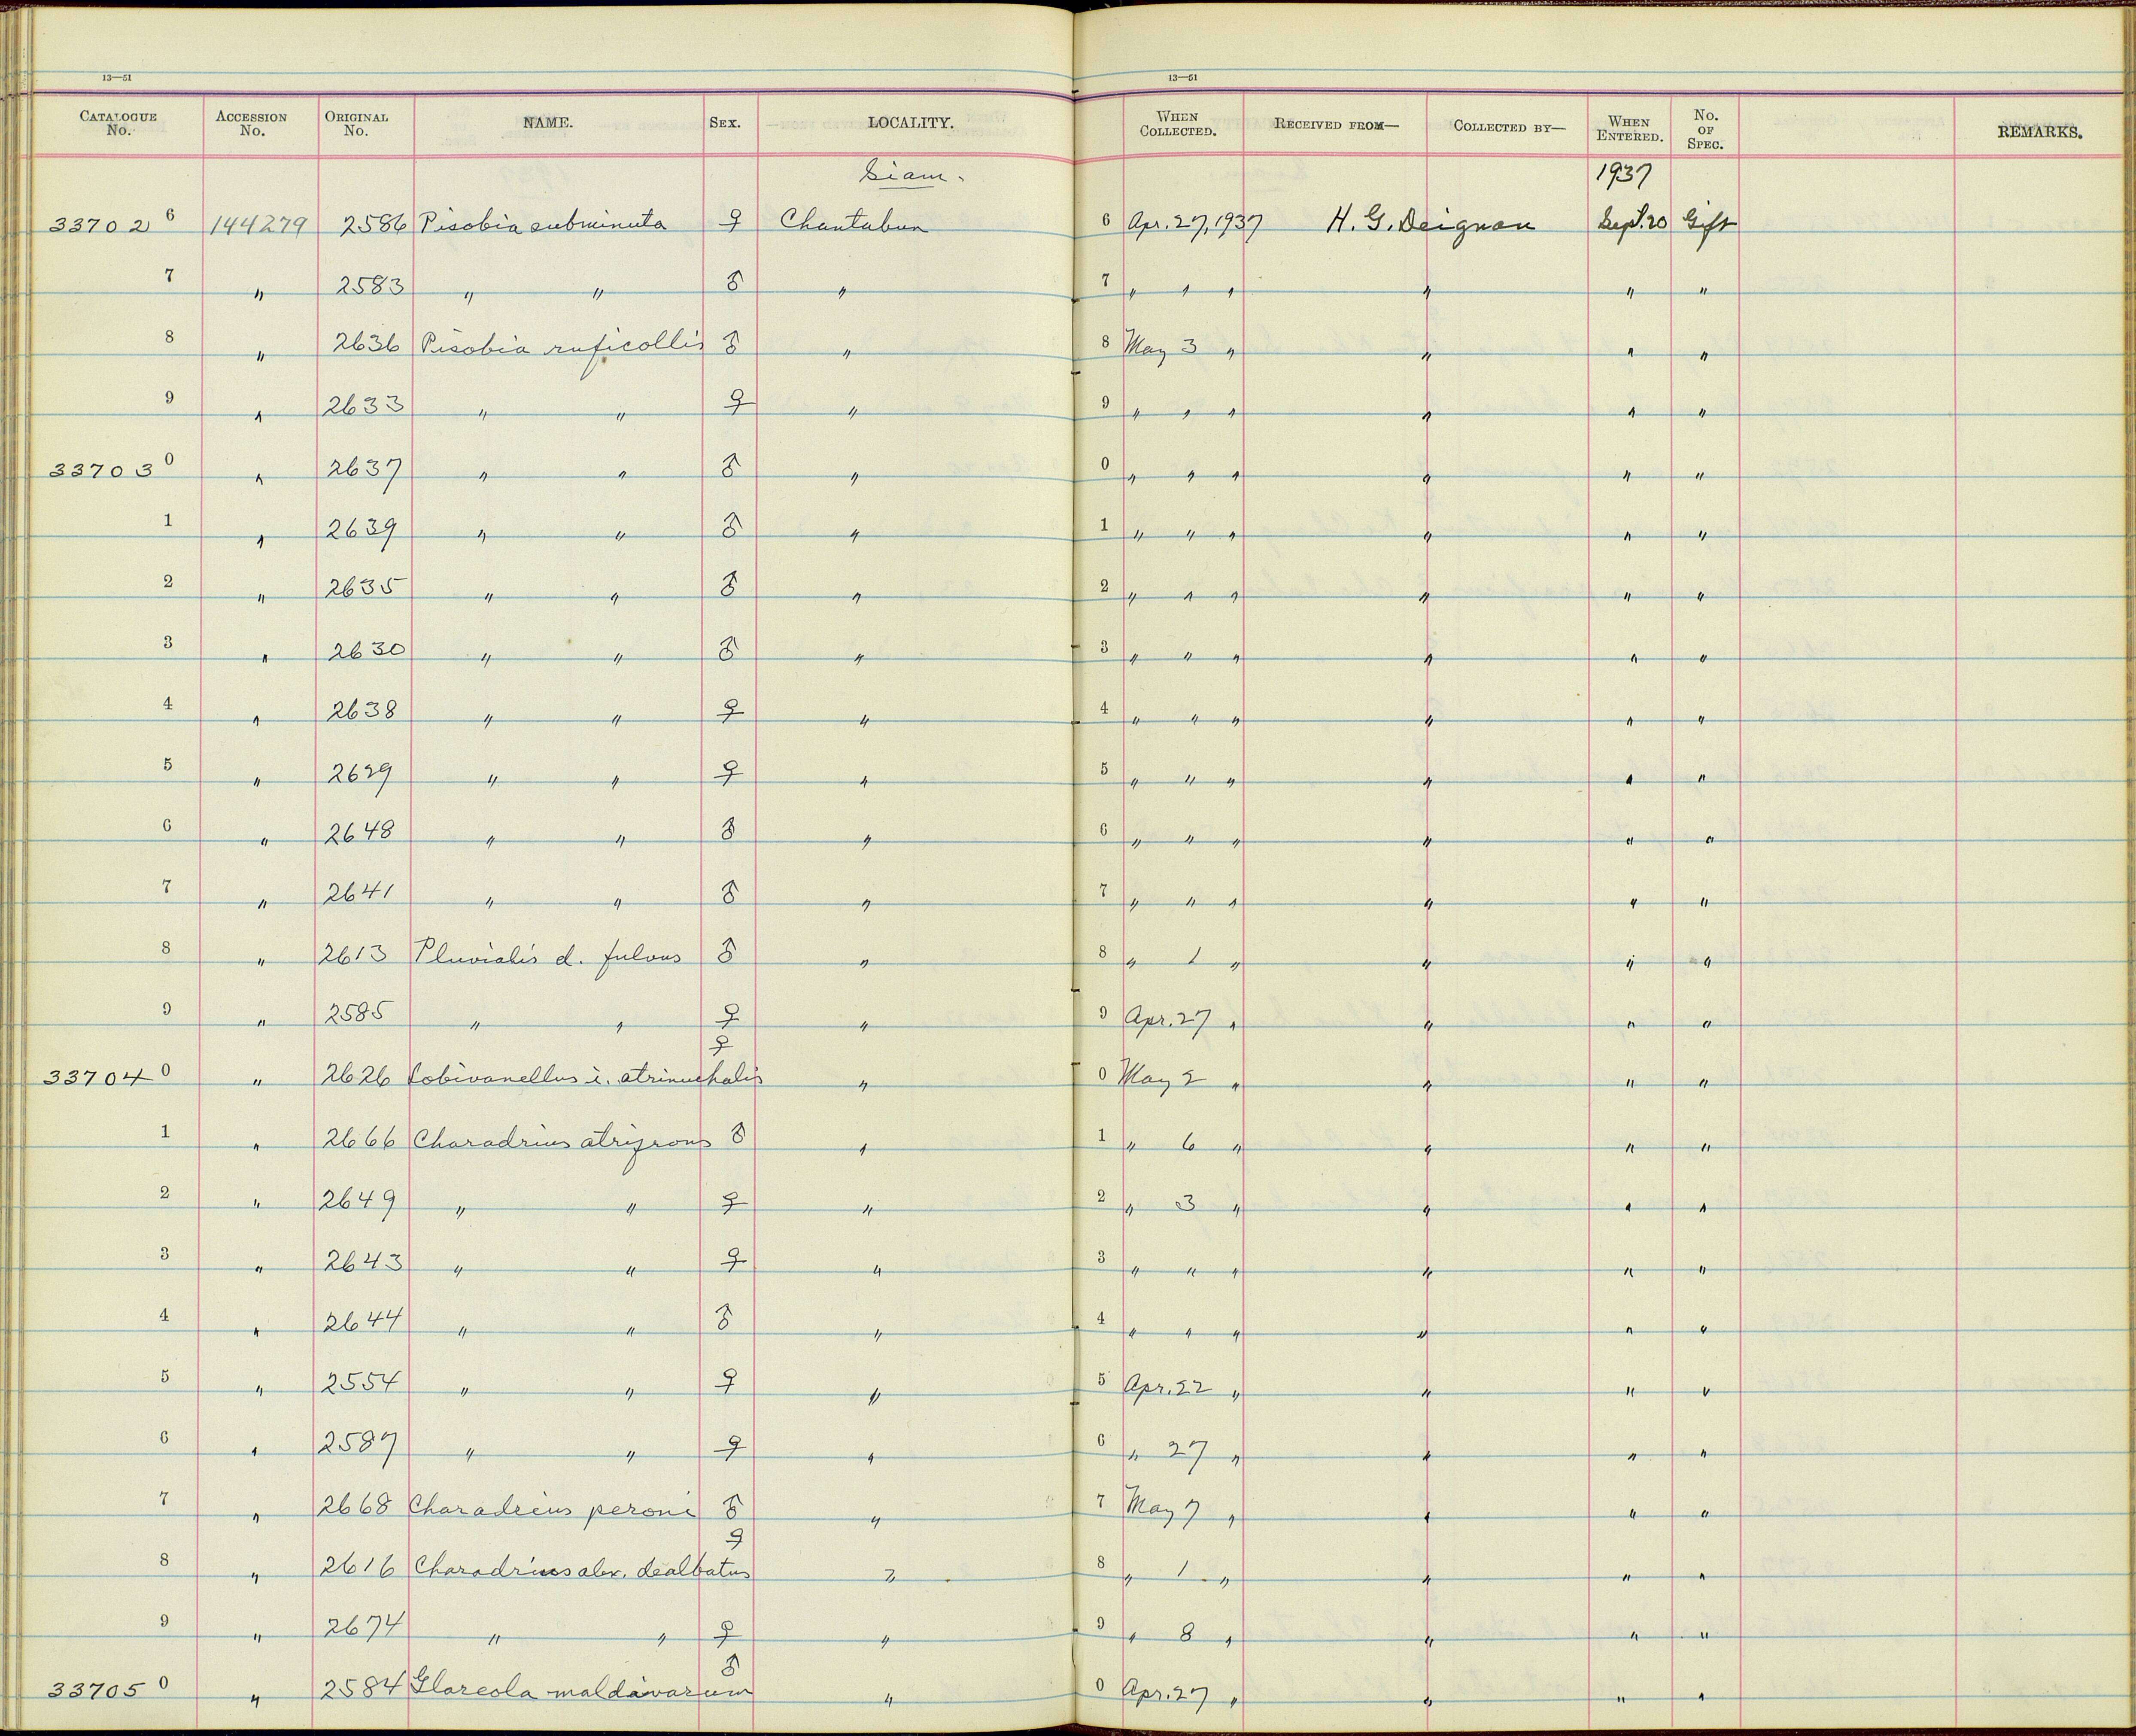 13—51 13—51
CATALOGUE No. ACCESSION No. ORIGINAL No. NAME. SEX. LOCALITY. WHEN COLLECTED. RECEIVED FROM— COLLECTED BY— WHEN ENTERED. No. OF SPEC. REMARKS.
Siam. 1937
33702 6 144279 2586 Pisobia subminuta ♀ Chantabun 6 Apr. 27, 1937 H. G. Deignan Sept. 20 Gift
7 " 2583 " " ♂ " 7 " " " " " "
8 " 2636 Pisobia ruficollis ♂ " 8 May 3 " " " "
9 " 2633 " " ♀ " 9 " " " " " "
33703 0 " 2637 " " ♂ " 0 " " " " " "
1 " 2639 " " ♂ " 1 " " " " " "
2 " 2635 " " ♂ " 2 " " " " " "
3 " 2630 " " ♂ " 3 " " " " " "
4 " 2638 " " ♀ " 4 " " " " " "
5 " " " ♀ " 5 " " " " " "
6 " 2648 " " ♂ " 6 " " " " " "
7 " 2641 " " ♂ " 7 " " " " " "
8 " 2613 Pluvialis d. fulvus ♂ " 8 " 1 " " " "
9 " 2585 " " ♀ " 9 Apr. 27 " " " "
33704 0 " 2626 Lobivanellus i. atrinuchalis ♀ " 0 May 2 " " " "
1 " 2666 Charadrius atrifrons ♂ " 1 " 6 " " " "
2 " 2649 " " ♀ " 2 " 3 " " " "
3 " 2643 " " ♀ " 3 " " " " " "
4 " 2644 " " ♂ " 4 " " " " " "
5 " 2554 " " ♀ " 5 Apr. 22 " " " "
6 " 2587 " " ♀ " 6 " 27 " " " "
7 " 2668 Charadrius peroni ♂ " 7 May 7 " " " "
8 " 2616 Charadrius alex. dealbatus ♀ " 8 " 1 " " " "
9 " 2674 " " ♀ " 9 " 8 " " " "
33705 0 " 2584 Glareola maldivarum ♂ " 0 Apr. 27 " " " "